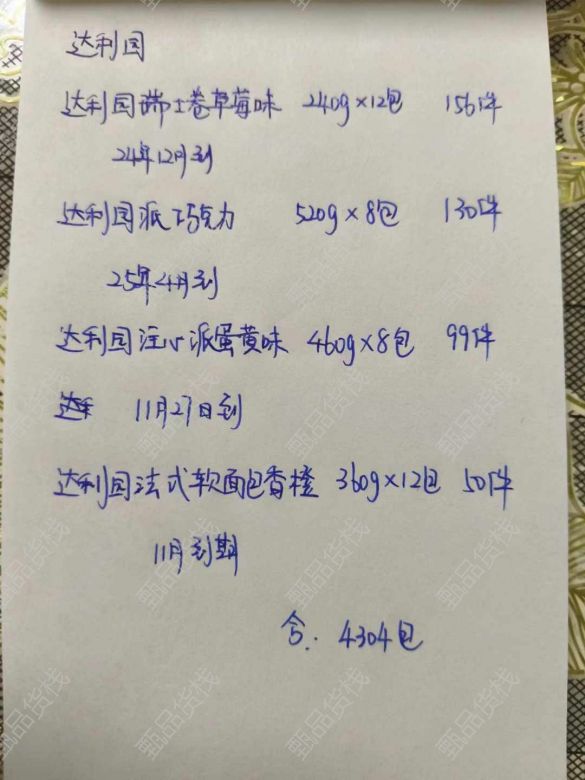 达利园
达利园瑞士卷草莓味 240g×12包 156件
24年12月到
达利园派巧克力 520g×8包 130件
25年4月到
达利园注心派蛋黄味 460g×8包 99件
11月27日到
达利园法式软面包香橙 360g×12包 50件
11月到期
合: 4304包
甄品货栈